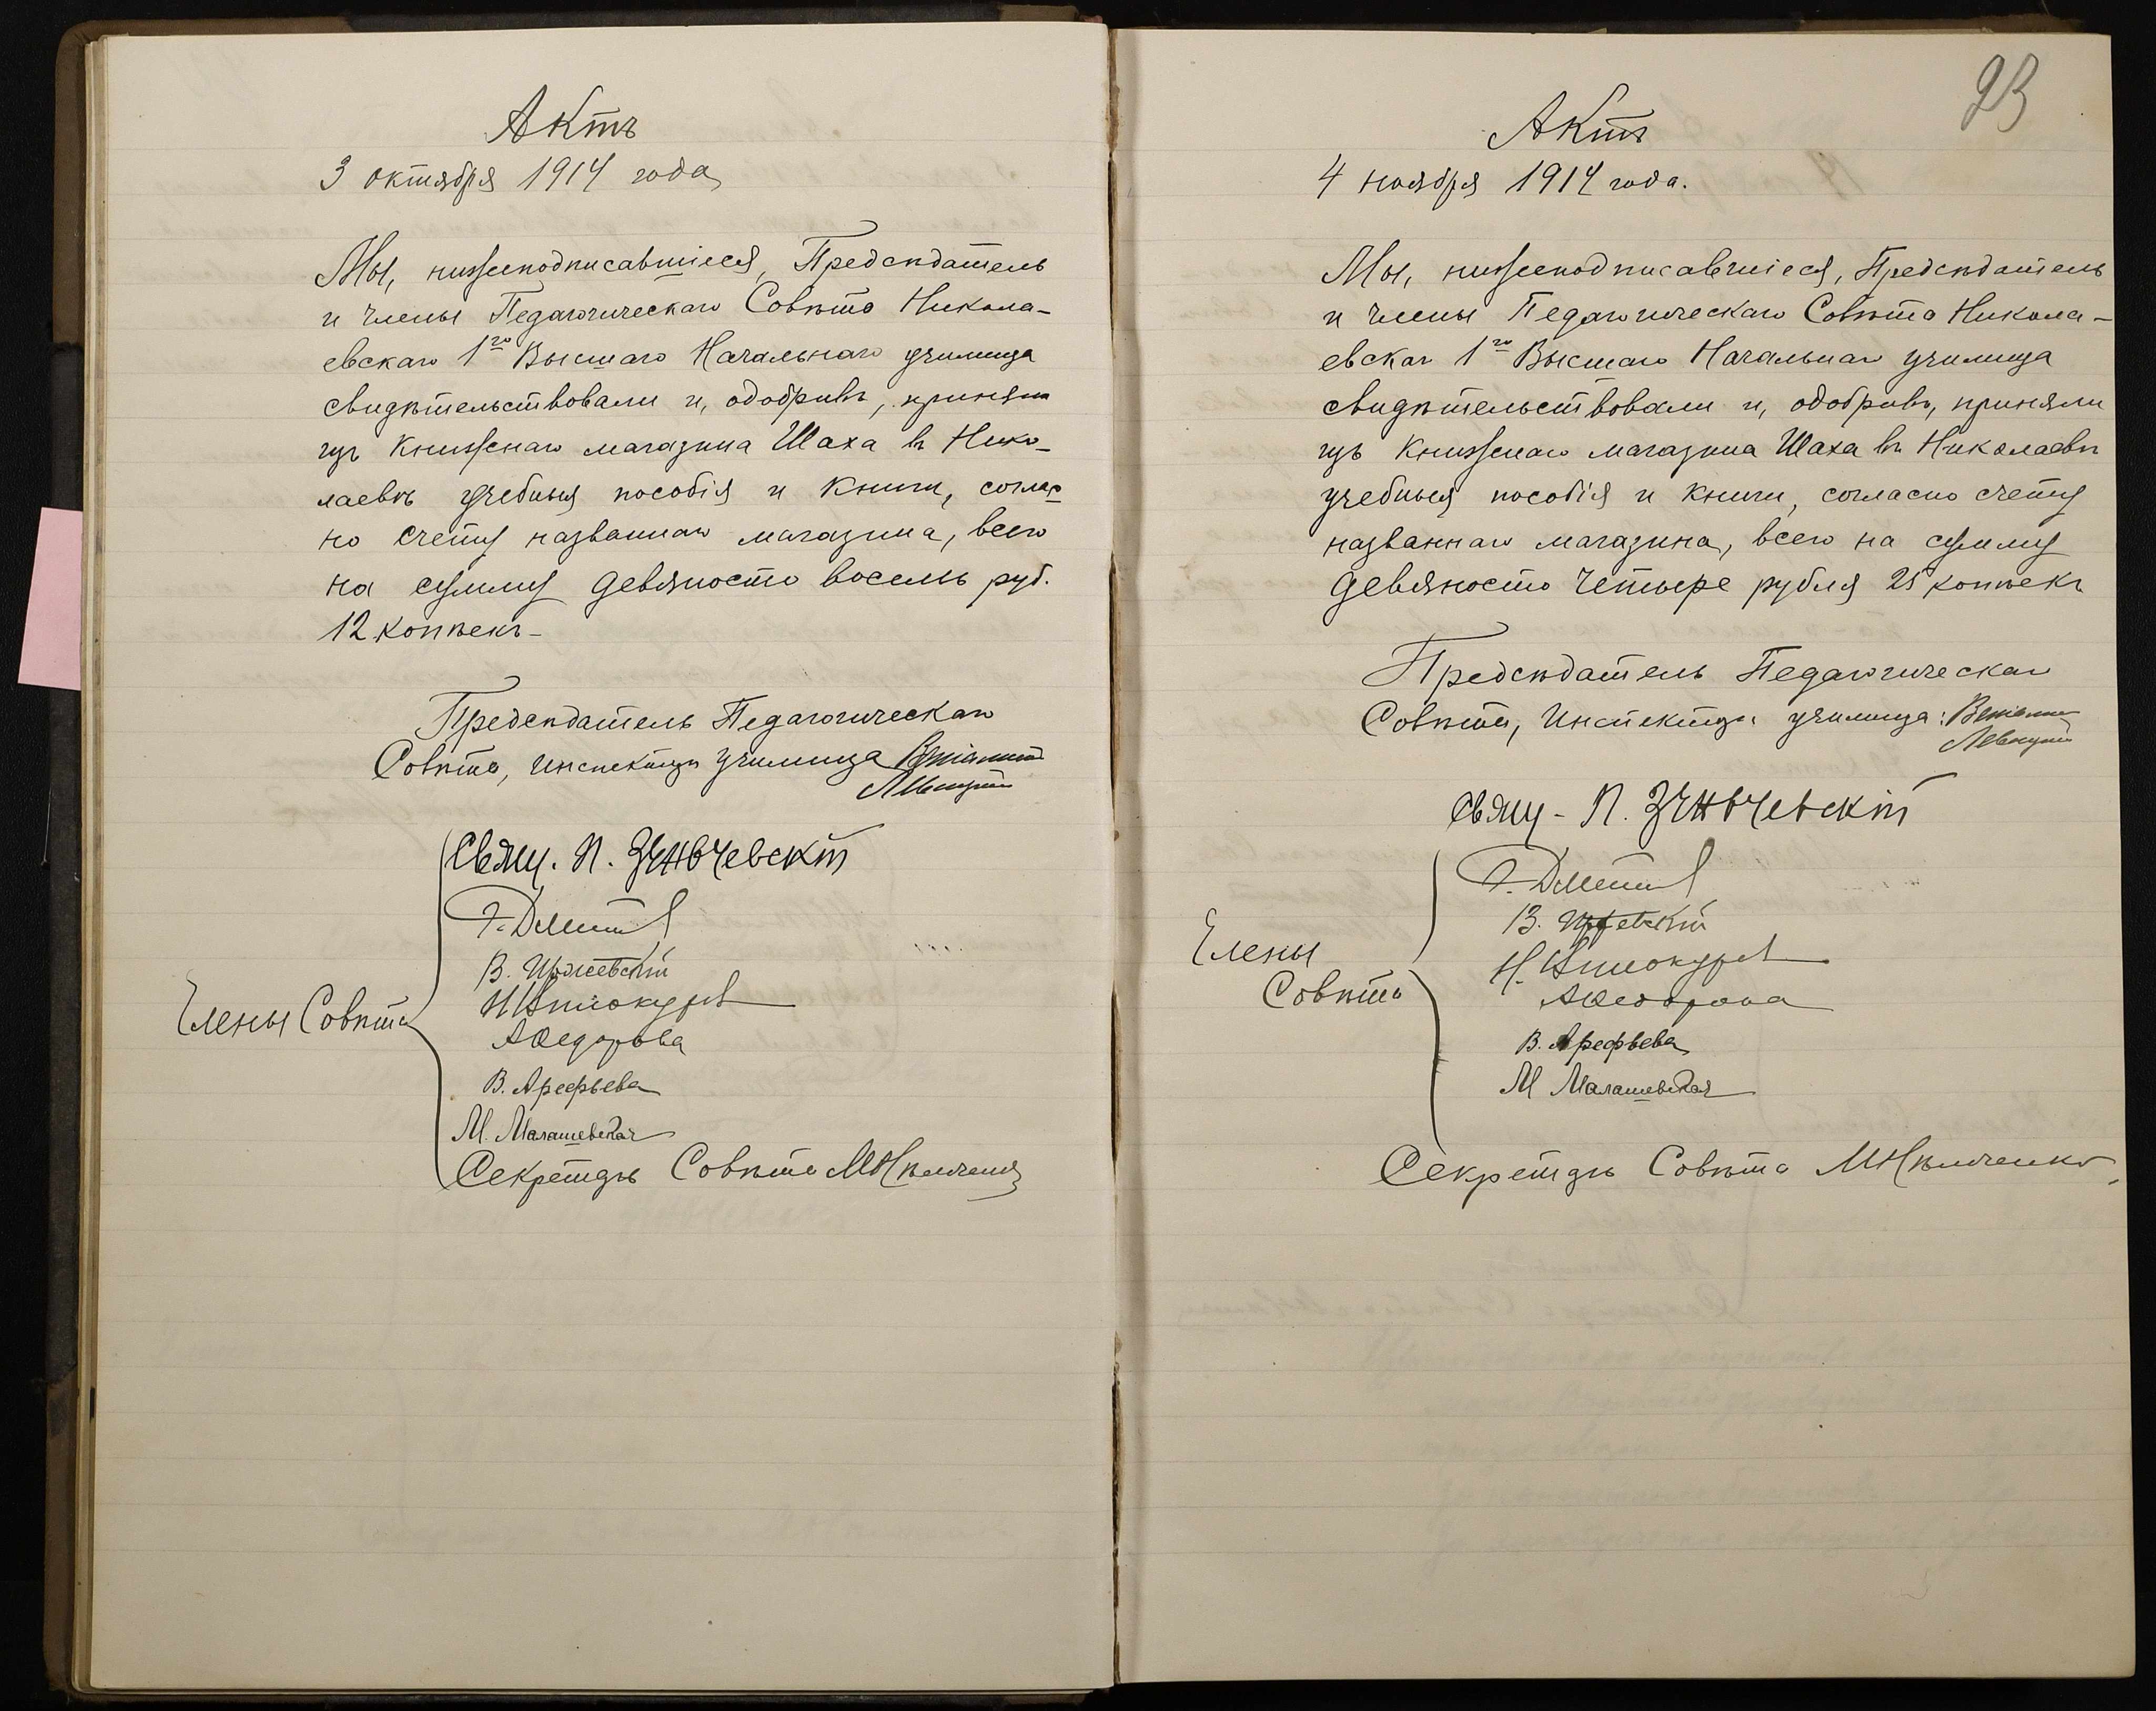 Актъ
3 октября 1914 года
Мы, нижеподписавшіеся, Предсѣдатель
и члены Педагогическаго Совѣта Никола-
евскаго 1го Высшаго Начальнаго училища
свидѣтельствовали и, одобривъ, приняли
изъ книжнаго магазина Шаха въ Нико-
лаевѣ учебныя пособія и книги, соглас-
но счету названнаго магазина, всего
на сумму девяносто восемь руб.
12 копѣекъ
Предсѣдатель Педагогическаго
Совѣта, Инспекторъ училища
Члены Совѣта
Свящ. П. Зенѣчевскій
В. Иржевскій
Н. Винокуровъ
А Федорова
В. Арефьева
М. Малашевская
Секретарь Совѣта
23
Актъ
4 ноября 1914 года.
Мы, нижеподписавшіеся, Предсѣдатель
и члены Педагогическаго Совѣта Никола-
евскаго 1го Высшаго Начальнаго училища
свидѣтельствовали и, одобривъ, приняли
изъ книжнаго магазина Шаха въ Николаевѣ
учебныя пособія и книги, согласно счету
названнаго магазина, всего на сумму
девяносто четыре рубля 25 копѣекъ
Предсѣдатель Педагогическаго
Совѣта, Инспекторъ училища:
Левицкій
Свящ - П. Зенѣчевскій
Члены
Совѣта
Н. Винокуровъ
А Федорова
В. Арефьева
М Малашевская
Секретарь Совѣта